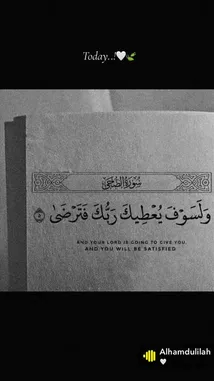 Today..!🤍🍃
سُورَةُ الضُّحَىٰ
وَلَسَوْفَ يُعْطِيكَ رَبُّكَ فَتَرْضَىٰ ٥
AND YOUR LORD IS GOING TO GIVE YOU
AND YOU WILL BE SATISFIED
Alhamdulilah
♥